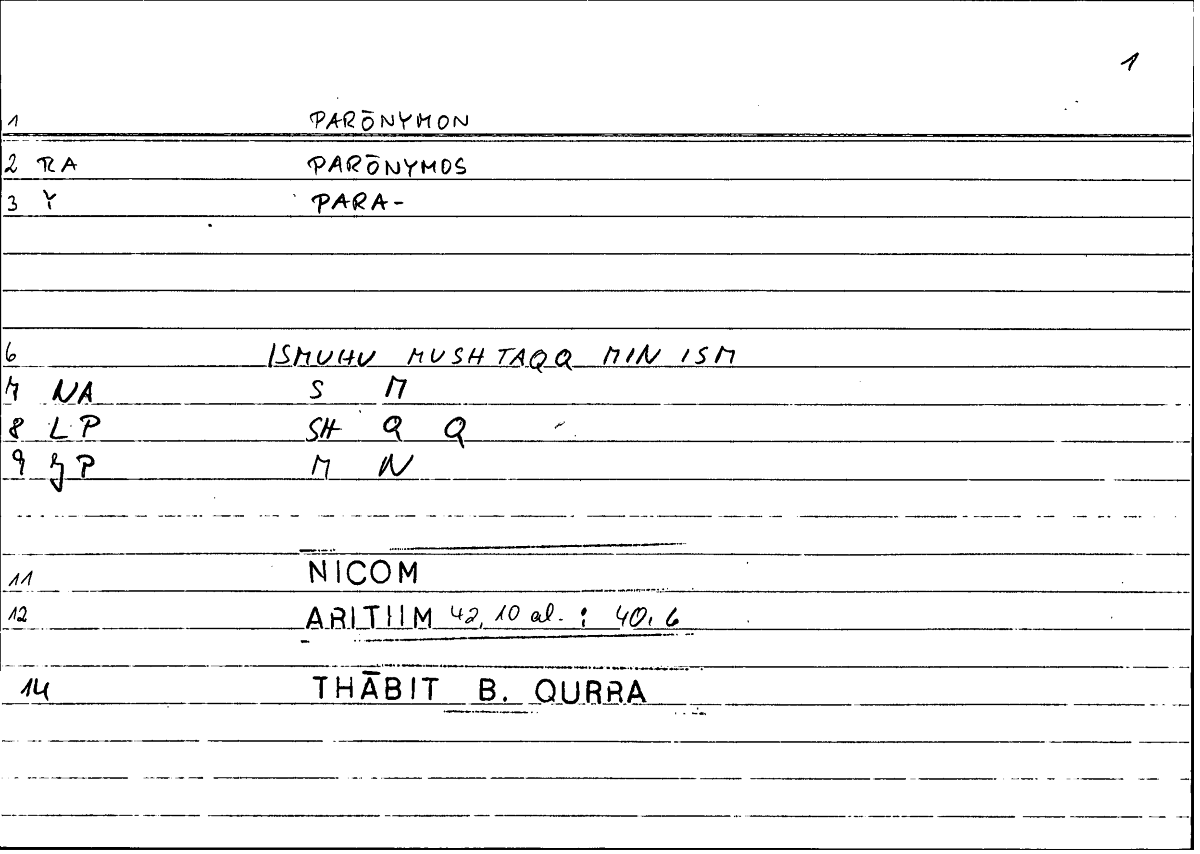 1
1 PARŌNYMON
2 RA PARŌNYMOS
3 Y PARA-
6 ISMUHU MUSHTAQQ MIN ISM
7 NA S M
8 LP SH Q Q
9 P M N
11 NICOM
12 ARITHM 42,10 al. : 40,6
14 THĀBIT B. QURRA